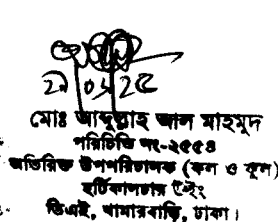 মোঃ আব্দুল্লাহ আল মাহমুদ
পরিচিতি নং-২৫৫৪
অতিরিক্ত উপপরিচালক (ফল ও ফুল)
হর্টিকালচার উইং
ডিএই, খামারবাড়ি, ঢাকা।